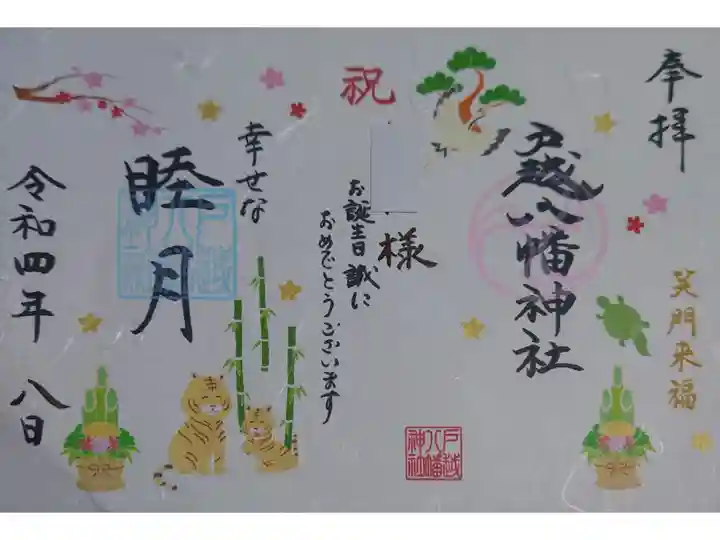 奉拝
笑門来福
戸越八幡神社
戸越
八幡
神社
祝
様
お誕生日誠に
おめでとうございます
幸せな
睦月
戸越
八幡
神社
令和四年 八日